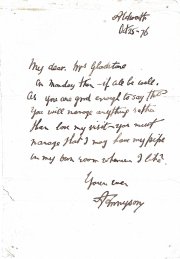 Aldworth
Oct 25 - 76
My dear Mrs Gladstone
on Monday then - if all be well.
As you are good enough to say that
you will manage anything rather
than lose my visit - you must
manage that I may have my pipe
in my own room whenever I like.
Yours ever
A Tennyson